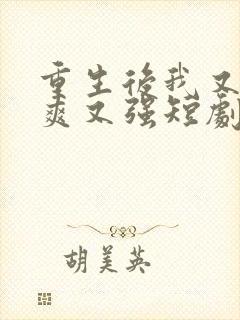 重生後我又
爽又强短劇
胡美英